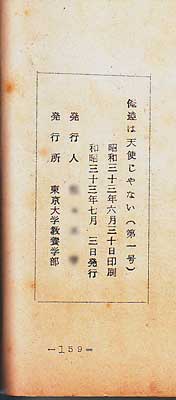 俺達は天使じゃない(第一号)
昭和三十三年六月三十日印刷
和昭三十三年七月 三日発行
発行人
発行所 東京大学教養学部
—159—